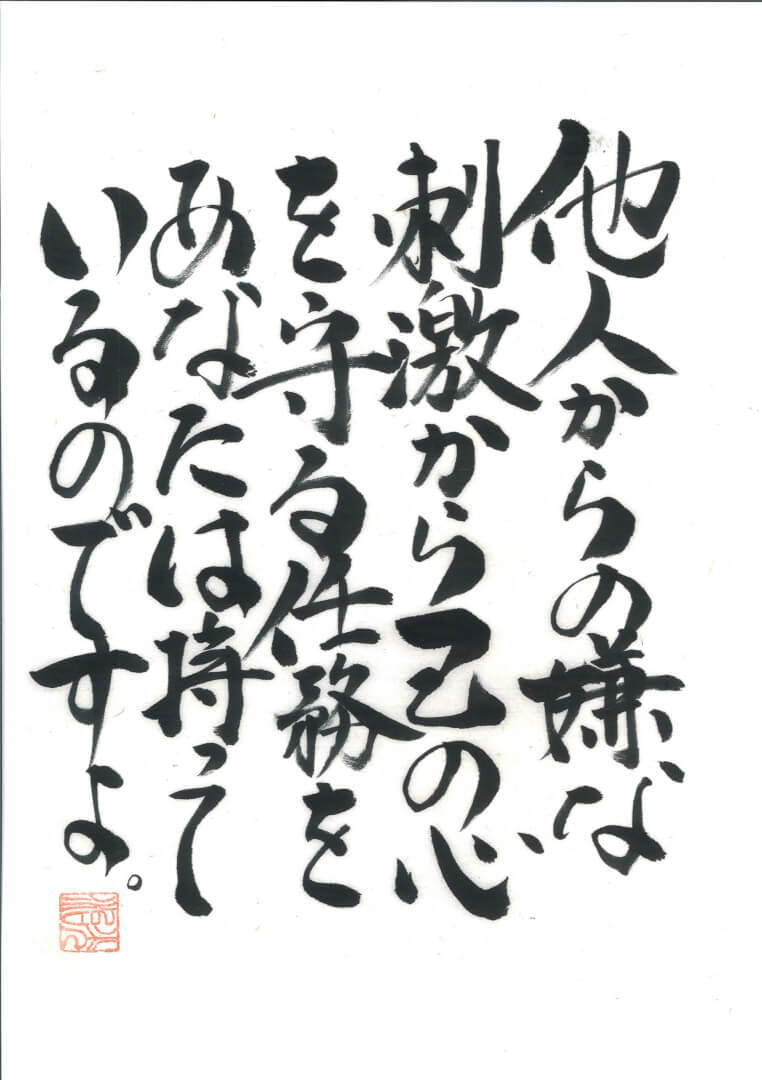 他人からの嫌な
刺激から己の心
を守る任務を
あなたは持って
いるのですよ。